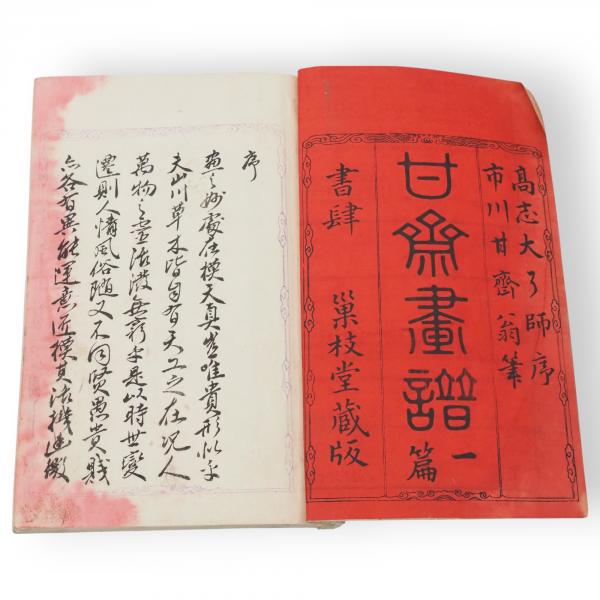 高志大了師序
市川甘齋翁筆
甘齋畫譜 一篇
書肆 巢枝堂藏版
序
畫之妙處在模天真豈唯貴形似乎
夫山川草木皆自有天工之在况人
萬物之靈活潑無窮乎是以時世變
遷則人情風俗隨又不同賢愚貴賤
亦各有異能運意匠模其活機幽微